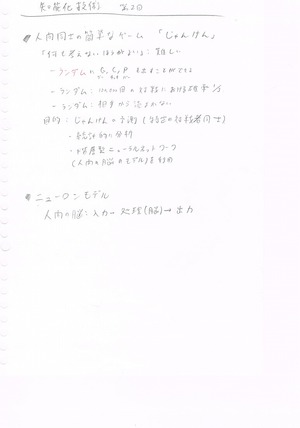 知能化技術 第2回
人間同士の簡単なゲーム 「じゃんけん」
「何も考えないほうがよい」: 難しい
- ランダムに G, C, P を出すことができる
- ランダム: における勝率 1/
- ランダム:
目的: じゃんけんの予測 (同士)
・統計的に分析
・階層型ニューラルネットワーク
(人間の脳のモデル)を利用
ニューロンモデル
人間の脳: 入力 → 処理(脳) → 出力